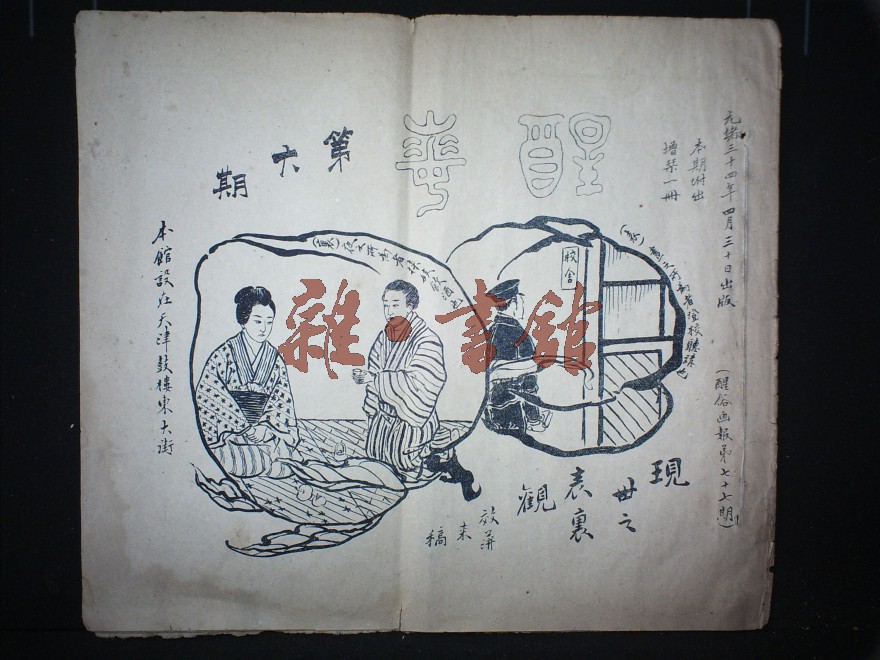 光緒三十四年四月三十日出版
(醒俗画報第七十七期)
本期附出
一冊
醒華
第六期
校舍
(表)
登校聽講也
(裏)
飲酒也
現世之表裏觀
來稿
本館設在天津鼓樓東大街
雜·書館